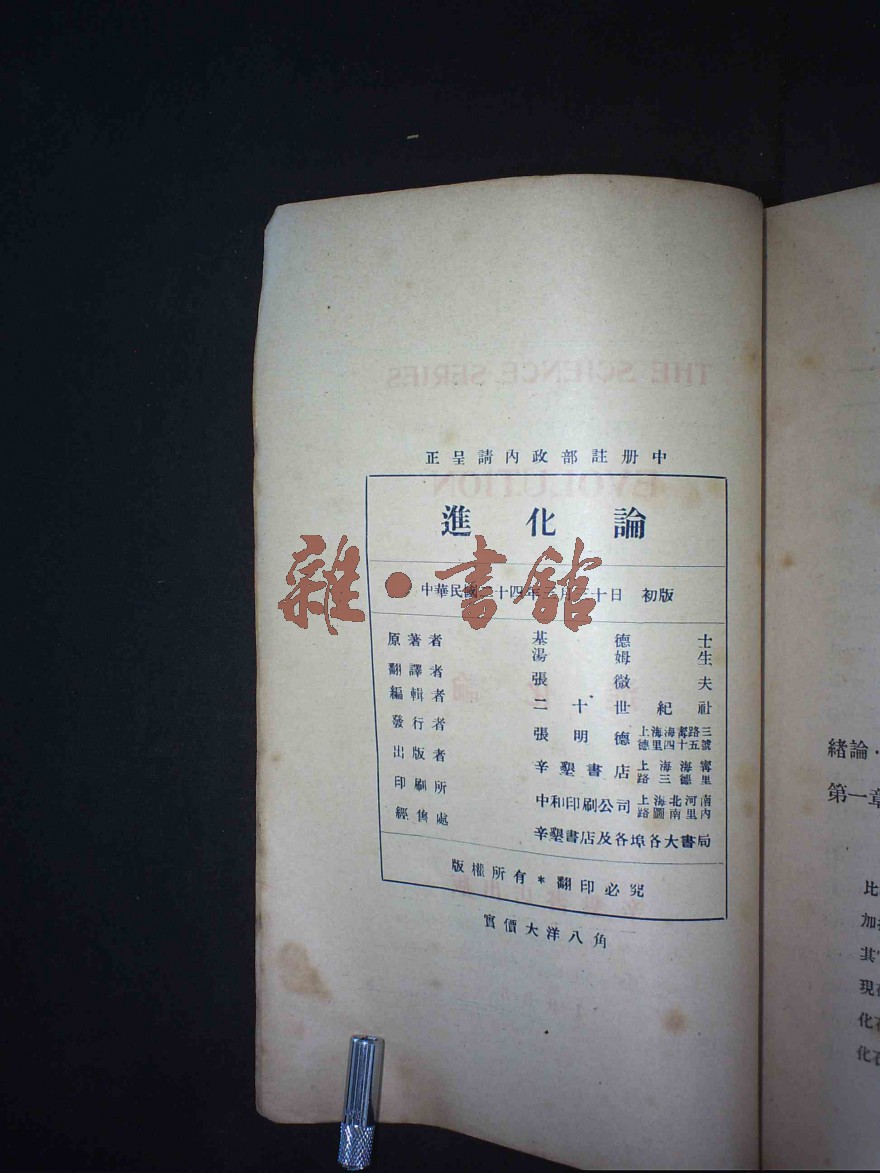 正呈請內政部註册中
進化論
中華民國二十四年 月三十日 初版
原著者 基德士
湯姆生
翻譯者 張微夫
編輯者 二十世紀社
發行者 張明德 上海海甯路三
德里四十五號
出版者 辛墾書店 上海海甯
路三德里
印刷所 中和印刷公司 上海北河南
路圖南里內
經售處 辛墾書店及各埠各大書局
版權所有*翻印必究
實價大洋八角
雜·書館
THE SCIENCE SERIES
EVOLUTION
緒論·
第一章
比
加
其
現
化石
化石